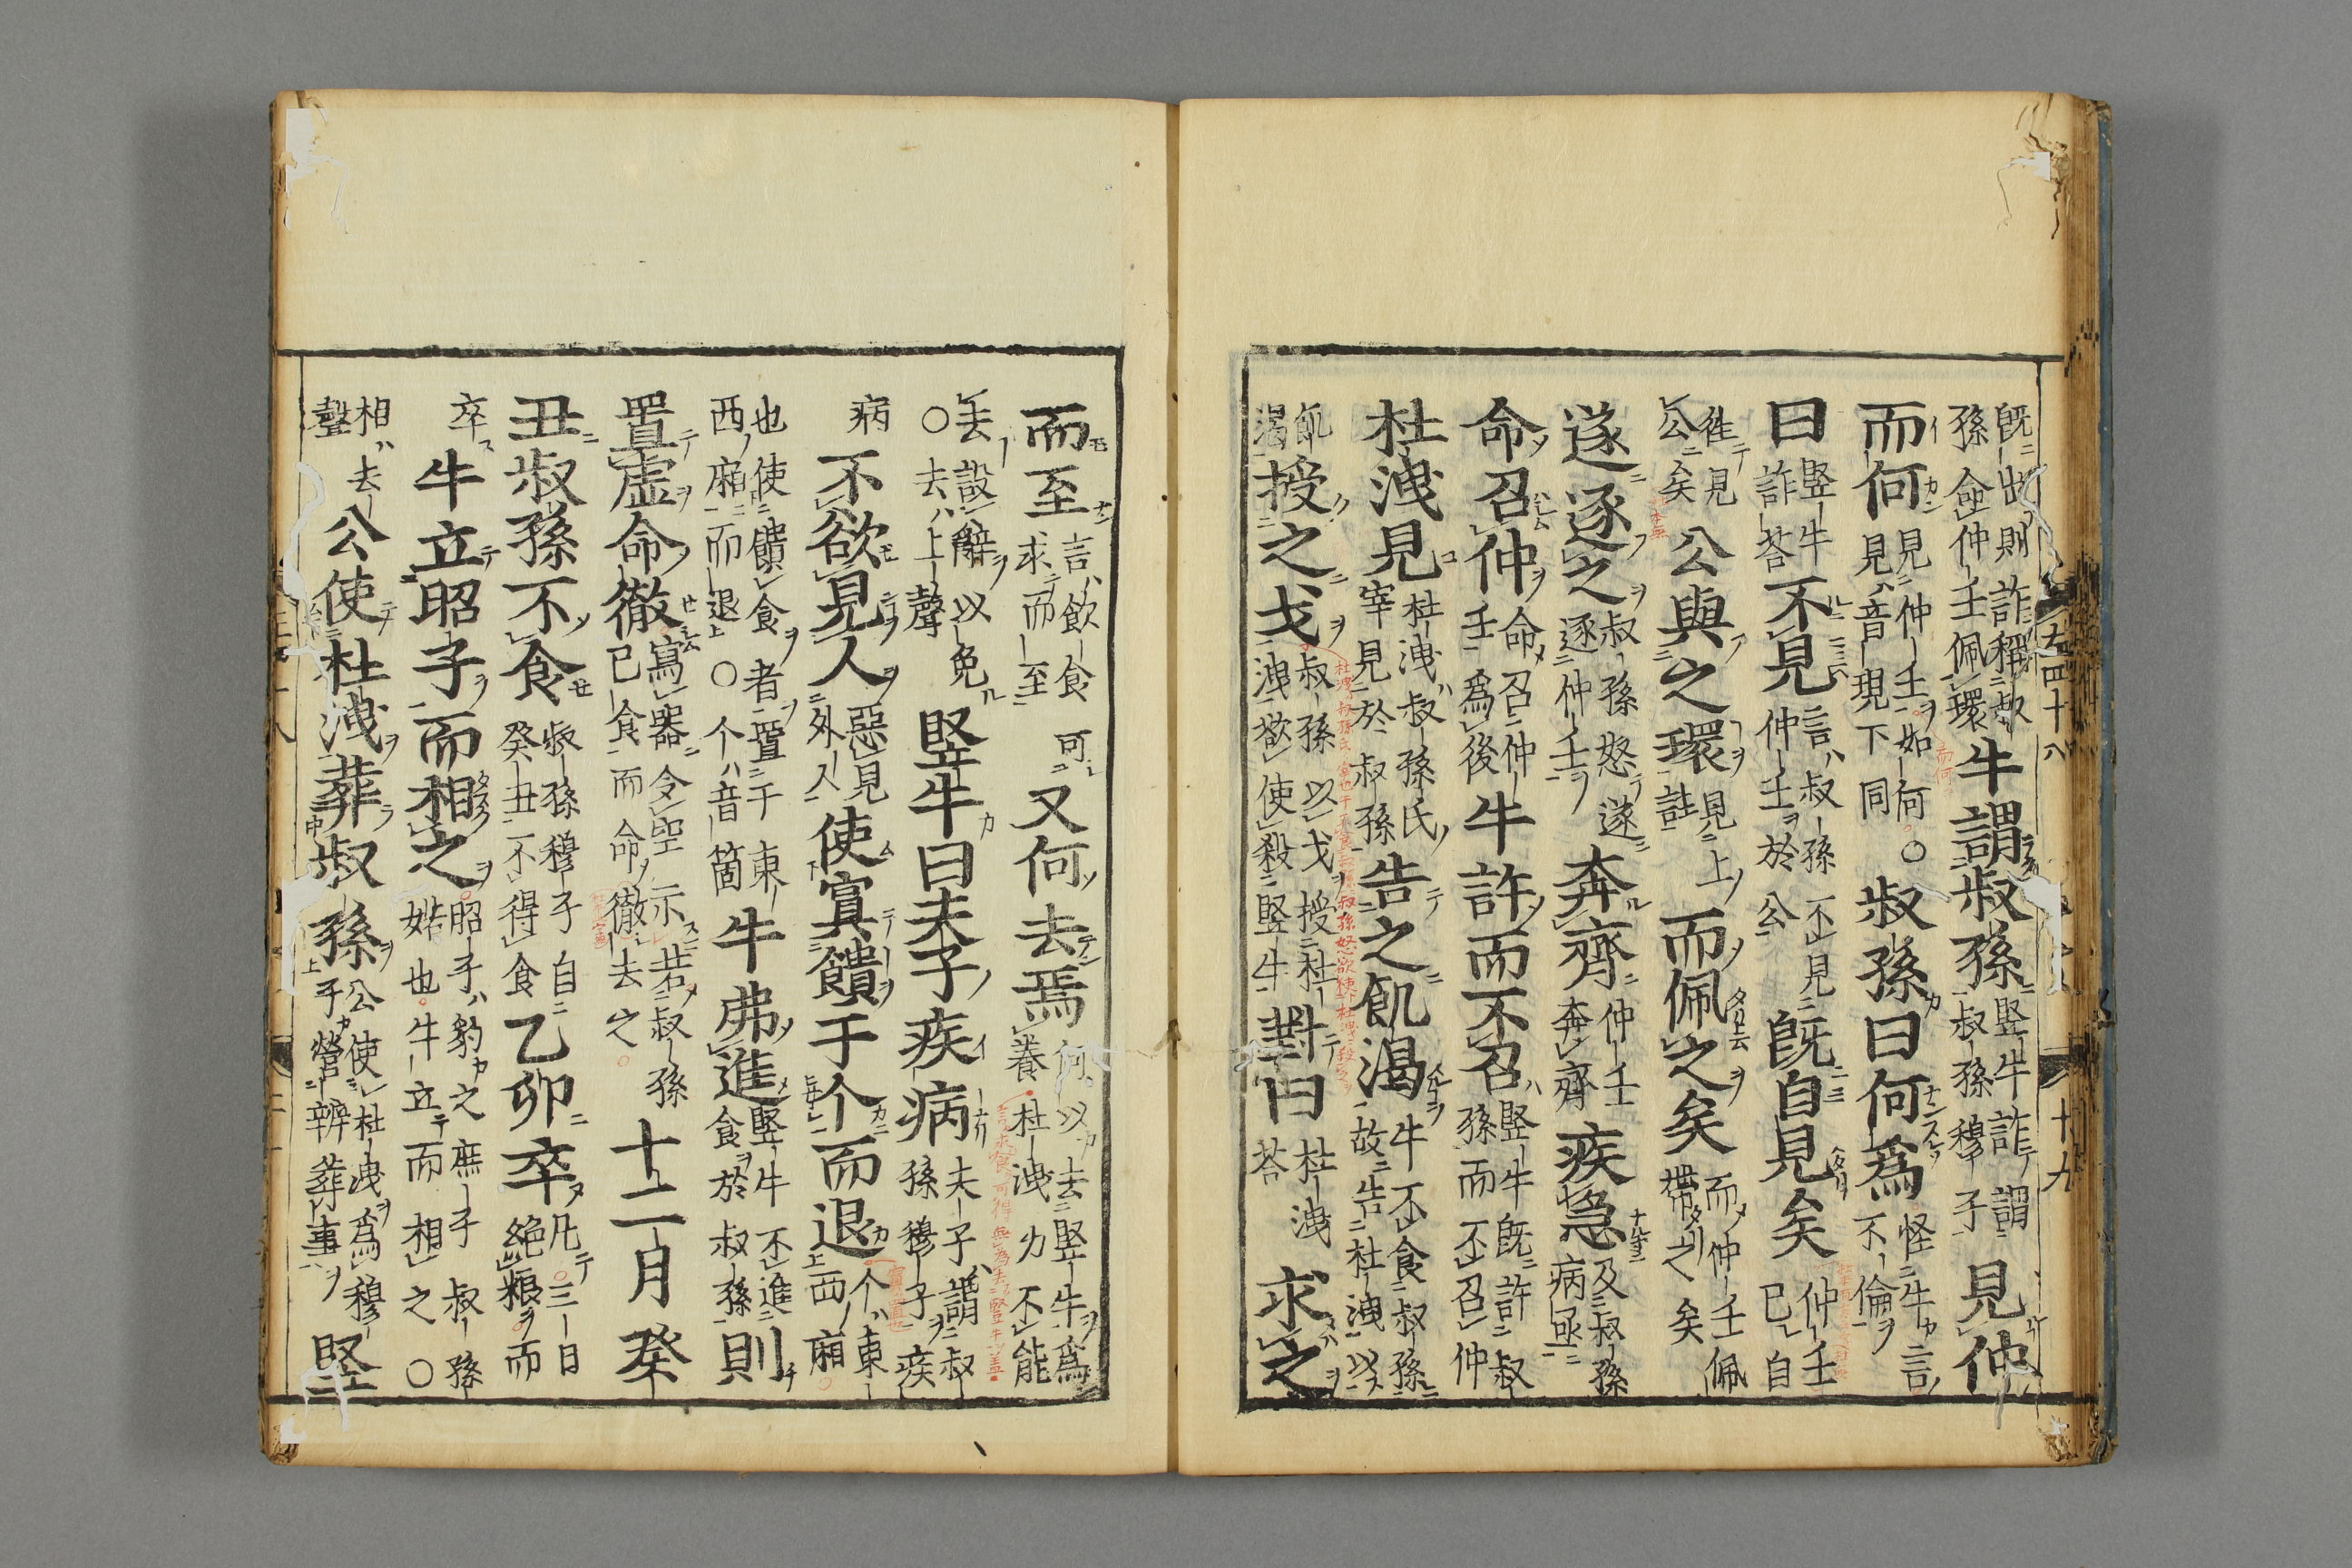 左四十八 十九
既出則詐稱叔孫命仲壬佩環牛謂叔孫竪牛詐謂叔孫穆子見仲
而何見仲壬如何○見音現下同叔孫曰何爲怪牛言不倫
曰竪牛詐荅不見言叔孫不見仲壬於公既自見矣仲壬已自
徃見公矣公與之環見上註而佩之矣而仲壬佩帶之矣
遂逐之叔孫怒遂逐仲壬奔齊仲壬奔齊疾急及叔孫病亟
命召仲命召仲壬爲後牛許而不召竪牛既許叔孫而不召仲
杜洩見杜洩叔孫氏宰見於叔孫告之飢渴牛不食叔孫故告杜洩以
飢渴授之戈叔孫以戈授杜洩欲使殺竪牛對曰杜洩荅求之
而至言飲食可求而至又何去焉何以去竪牛爲養杜洩力不能
去設辭以免○去上聲竪牛曰夫子疾病夫子謂叔孫穆子疾
病不欲見人惡見外人使寘饋于个而退个東西廂
也使饋食者置于東西廂而退○个音箇牛弗進竪牛不進食於叔孫則
置虚命徹寫器令空示若叔孫已食而命徹去之十二月癸
丑叔孫不食叔孫穆子自癸丑不得食乙卯卒凡三日絶粮而
卒牛立昭子而相之昭子豹之庶子叔孫婼也牛立而相之○
相去聲公使杜洩葬叔孫公使杜洩爲穆子營辨葬事竪